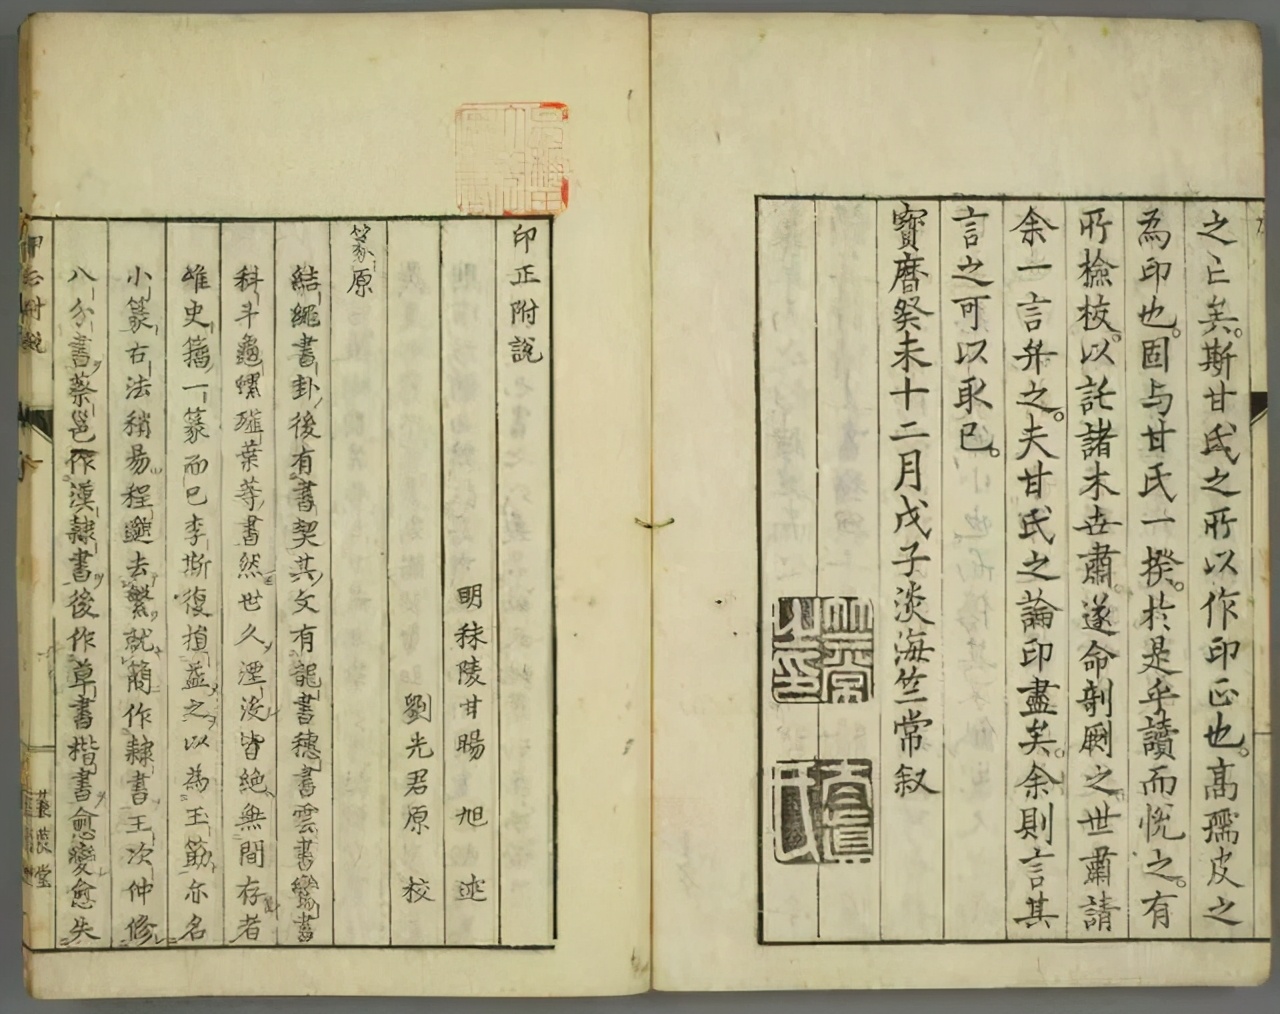 之亡矣。斯甘氏之所以作印正也。高孺皮之
為印也。固与甘氏一揆。於是乎讀而悅之。有
所撿校。以託諸木世肅。遂命剞劂之。世肅請
余一言弁之。夫甘氏之論印盡矣。余則言其
言之可以取已。
寶曆癸未十二月戊子淡海竺常叙
印正附說
明秣陵甘暘旭述
劉光君原校
篆原
結繩書卦後有書契其文有龍書穗書雲書鸞書
科斗龜螺薤葉等書然世久湮沒皆絶無間存者
唯史籀一篆而已李斯復損益之以為玉筯亦名
小篆右法稍易程邈去繁就簡作隸書王次仲修
八分書蔡邕作漢隸書後作草書楷書愈變愈失
蒹葭堂